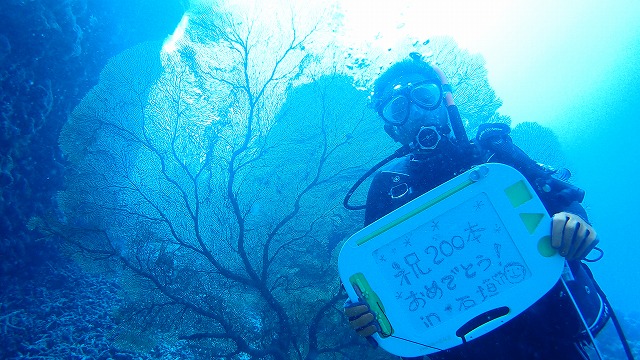 祝200本
おめでとう!
in★石垣